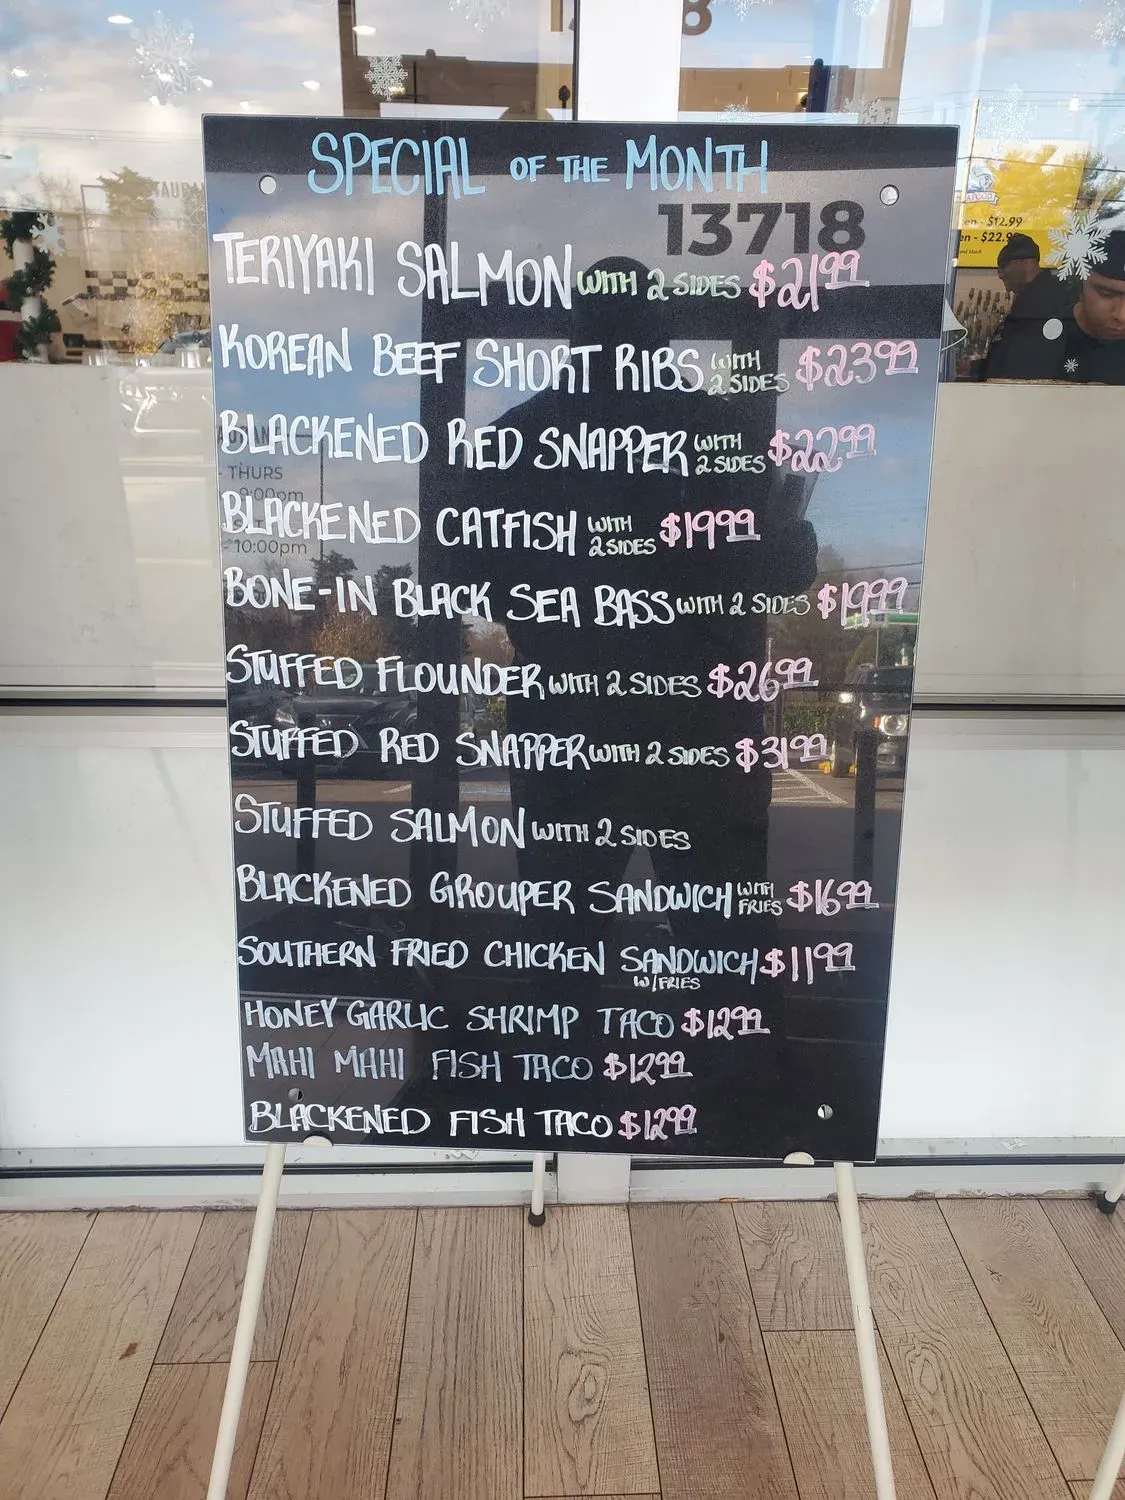 SPECIAL OF THE MONTH
13718
TERIYAKI SALMON WITH 2 SIDES $21.99
KOREAN BEEF SHORT RIBS WITH 2 SIDES $23.99
BLACKENED RED SNAPPER WITH 2 SIDES $22.99
BLACKENED CATFISH WITH 2 SIDES $19.99
BONE-IN BLACK SEA BASS WITH 2 SIDES $19.99
STUFFED FLOUNDER WITH 2 SIDES $26.99
STUFFED RED SNAPPER WITH 2 SIDES $31.99
STUFFED SALMON WITH 2 SIDES
BLACKENED GROUPER SANDWICH WITH FRIES $16.99
SOUTHERN FRIED CHICKEN SANDWICH W/FRIES $11.99
HONEY GARLIC SHRIMP TACO $12.99
MAHI MAHI FISH TACO $12.99
BLACKENED FISH TACO $12.99
- THURS
9:00pm
- 10:00pm
en - $12.99
en - $22.99